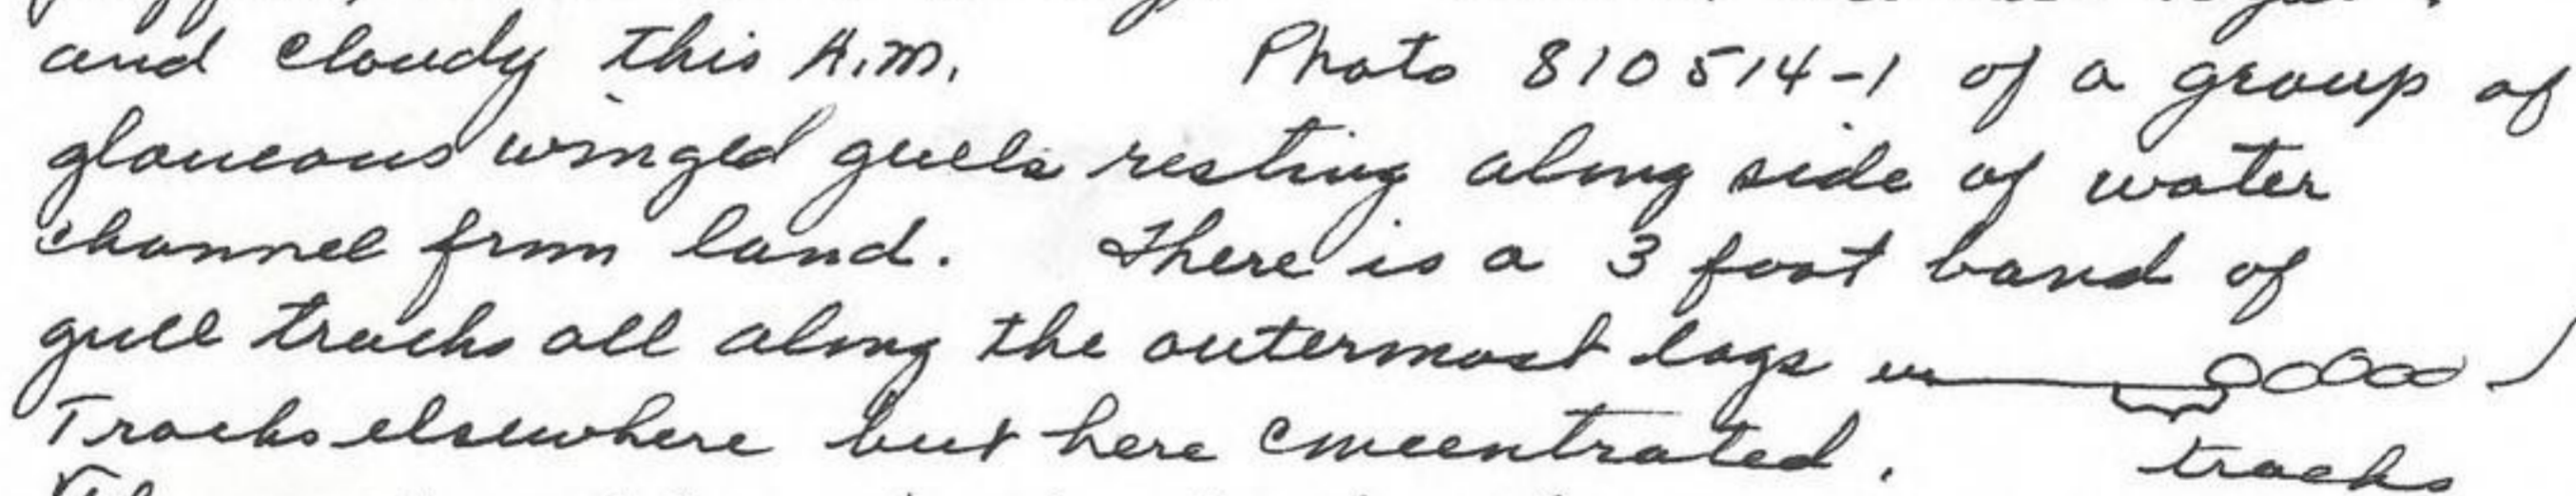 and cloudy this A.M. Photo 810514-1 of a group of
glaucous winged gulls resting along side of water
channel from land. There is a 3 foot band of
gull tracks all along the outermost logs
Tracks elsewhere but here concentrated. tracks